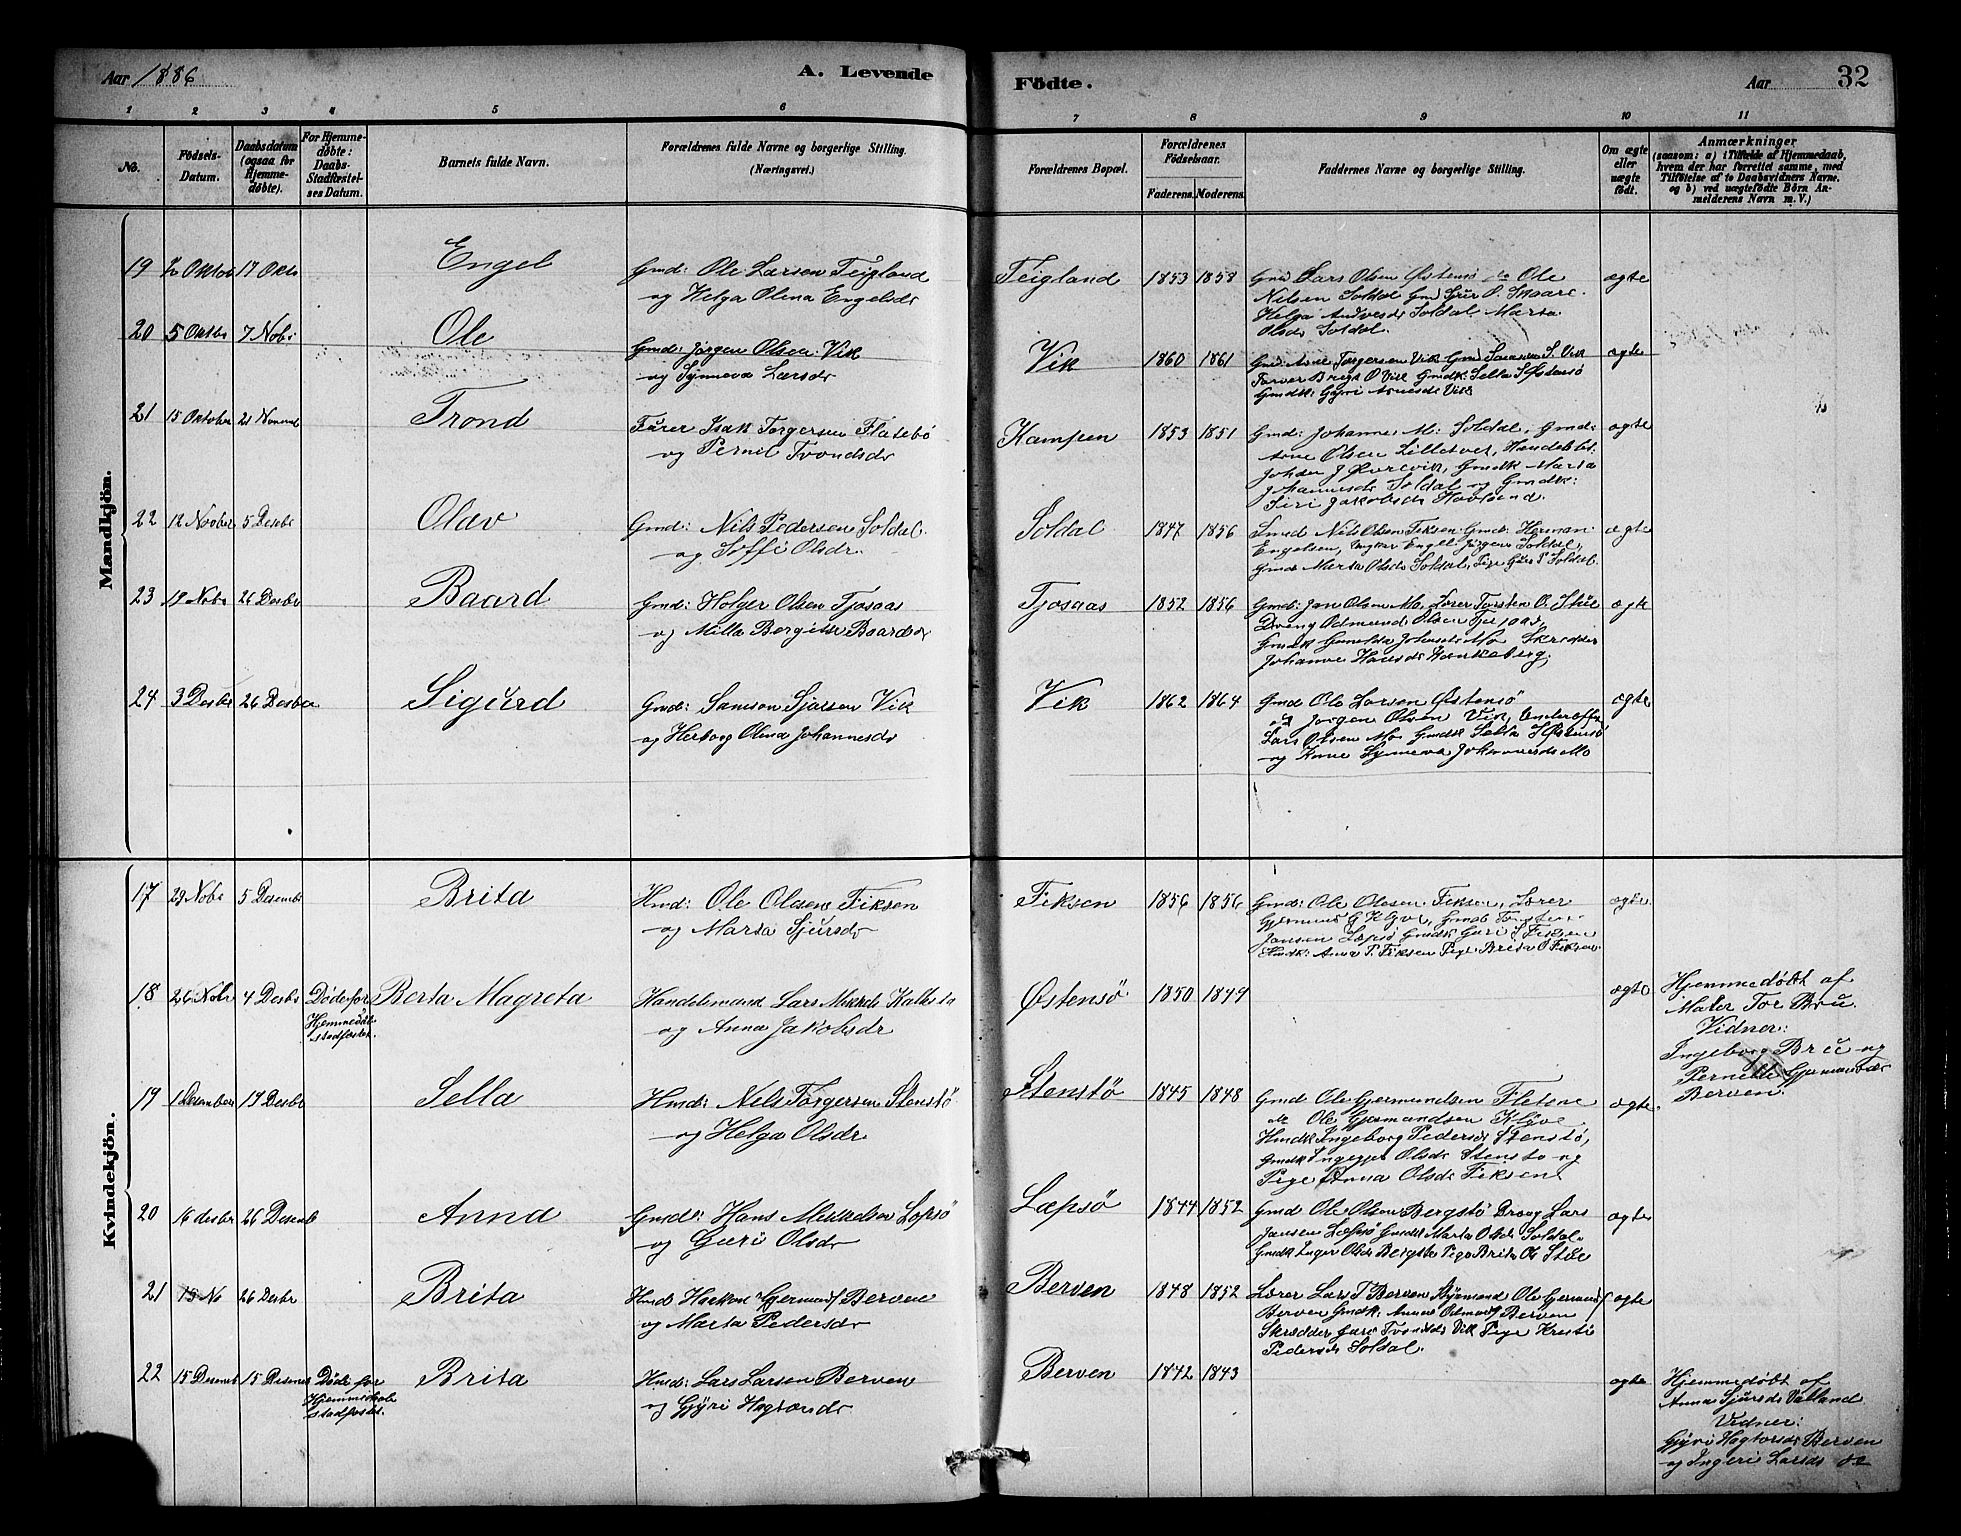 Aar 1886
A. Levende
Födte.
Aar
32
1 2 3 4 5 6 7 8 9 10 11
No.
Födsels-Datum.
Daabsdatum (ogsaa for Hjemmedöbte).
For Hjemmedöbte: Daabs-Stadfæstelses Datum.
Barnets fulde Navn.
Forældrenes fulde Navne og borgerlige Stilling.
(Næringsvei.)
Forældrenes Bopæl.
Forældrenes Födselsaar.
Faderens. Moderens.
Faddernes Navne og borgerlige Stilling.
Om ægte eller uægte födt.
Anmærkninger
(saasom: a) i Tilfælde af Hjemmedaab,
hvem der har forrettet samme, med
Tilföielse af to Daabsvidners Navne.
og b) ved uægtefödte Börn An-
melderens Navn m. V.)
Mandkjön.
19 Oktob 17 Okto Engel
Gmd: Ole Larsen Teigland
og Helga Olena Engelsdr
Teigland 1853 1858
Gmd Lars Olsen Østensö do Ole
Nilsen Soldal Gmd Sjur O. Skaare
Helga Soldal Marta
Olsdr Soldal.
ægte
20 5 Oktbr 7 Nobr Ole
Gmd: Jörgen Olsen Vik
og Synneva Larsdr
Vik 1860 1861
Gmd: Arne Torgersen Vik Gmd Samson S. Vik
Farver O Vik Gmdk: Sella S Østensö
Gmdk: Gyri Arnesdr Vik
ægte
21 15 Oktober 21 Trond
Furer Isak Torgersen Flatebö
og Pernil Trondsdr
Kampen 1853 1851
Gmd: Johannes M. Soldal, Gmd:
Arne Olsen Lilletvet, Handelsbet
J Gmdk Marta
Soldal og Gmdk:
Siri Jakobsdr
ægte
22 12 Novbr 5 Desbr Olav
Gmd: Nils Pedersen Soldal
og Soffi Olsdr.
Soldal 1847 1856
Smed Nils Olsen Fiksen Gmd: Herman
Engelsen, Ungkar Engel Jörgens Soldal,
Gmd Marta Olsdr Soldal, Pige Guro P Soldal.
ægte
23 18 Nobr 26 Desbr Baard
Gmd: Holger Olsen Tjosaas
og Milla Bergitte Baardsdr
Tjosaas 1852 1856
Gmd: Jan Olsen Mo, Lærer Torsten O. Stue
Dreng Odmund Olsen Tjosaas,
Gmdk Gunilda Johansdr Mo Skredder
Johanne Hansdr
ægte
24 3 Desbr 26 Desber Sigurd
Gmd: Samson Sjursen Vik
og Herborg Olina Johannesdr
Vik 1862 1864
Gmd Ole Larsen Østensö
og Jörgen Olsen Vik, Underoff
Lars Olsen Mo Gmdk Sella S Østensö
og Kone Synneva Johannesdr Mo
ægte
Kvindekjön.
17 29 Nobr 5 Desembr Brita
Hmd: Ole Olesen Fiksen
og Marta Sjursdr
Fiksen 1856 1856
Gmd: Ole Olesen Fiksen, Lærer
Gjermund G Klyve, Gmd Torsten
Jansen Læpsö Gmdk Guri S Fiksen
Hmdk: Anna P. Fiksen Pige Brita O Fiksen
ægte
18 26 Nobr 4 Desbr Döde for
Hjemmedaab
stadfæstet.
Berta Magreta
Handelsmand Lars Mikkels
og Anna Jakobsdr
Østensö 1850 1849
ægte
Hjemmedöbt af
Maler Tor Bru.
Vidner:
Ingeborg Bru og
Pernille Gjermundsdr
Berven.
19 1 Desember 19 Desbr Sella
Hmd: Nils Torgersen Stenstö
og Helga Olsdr
Stenstö 1845 1848
Gmd Ole Gjermundsen Fletene
do Ole Gjermundsen Klyve
Hmdk Ingeborg Pedersdr Stenstö,
Gmdk Olsdr Stenstö og
Pige Anna Olsdr Fiksen
ægte.
20 16 desbr 26 Desemb Anna
Gmdk: Hans Mikkelsen Læpsö
og Guri Olsdr
Læpsö 1844 1852
Gmd Ole Olsen Bergstö Dreng Lars
Jansen Læpsö Gmdk Marta Olsdr Soldal.
Gmdk Inger Olsdr Bergstö Pige Brita O. Stue
ægte
21 15 No 26 Desbr Brita
Hmd Haakon Gjermunds Berven
og Marta Pedersdr
Berven 1848 1852
Lærer Lars T Berven Ole Gjermunds
Berven Gmdk. Anna Berven
Skredder Trondsdr Vik Pige Kristi
Pedersdr Soldal.
ægte
22 15 Desemb 15 Desemb Döde for
Hjemmedaab
stadfæstet.
Brita
Hmd: Lars Larsen Berven
og Gjyri Hagtorsdr
Berven 1842 1843
ægte
Hjemmedöbt af
Anna Sjursdr Valland
Vidner:
Gjyri Hagtorsdr Berven
og Ingeri Larsdr do